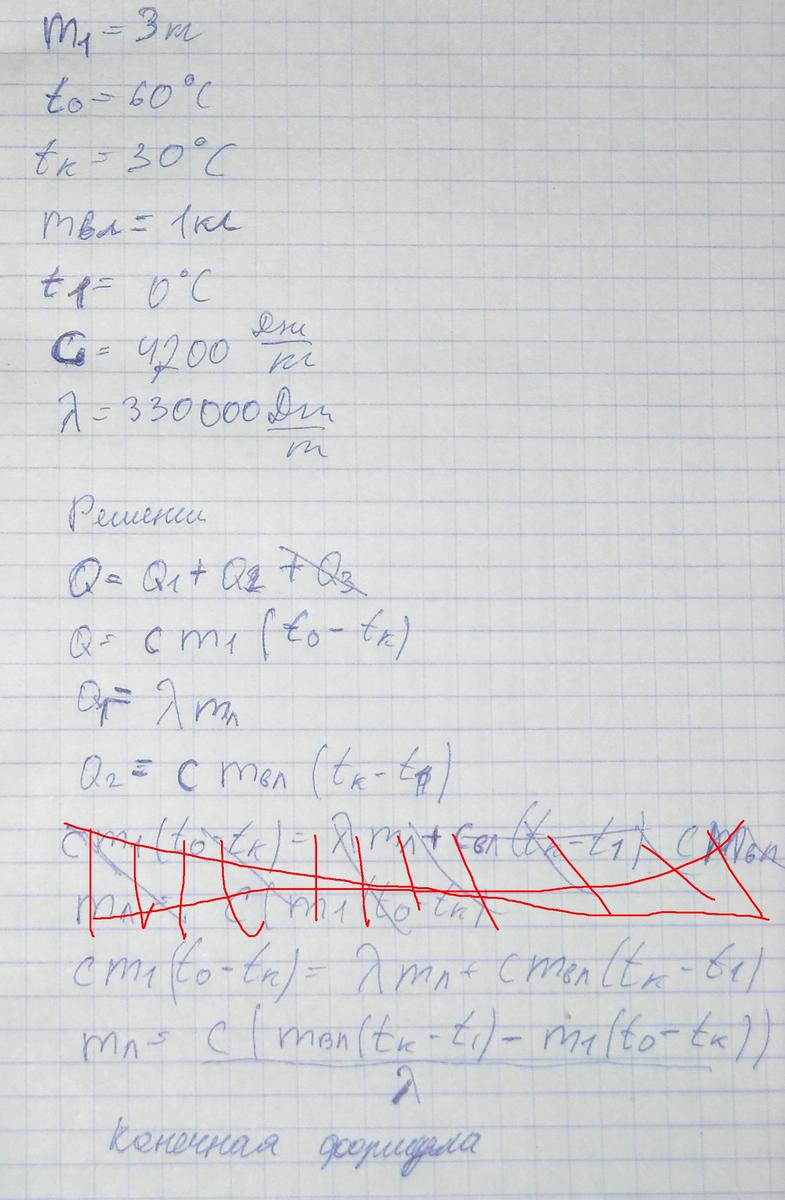 m₁ = 3 кг
t₀ = 60°C
tк = 30°C
mвл = 1 кг
t₁ = 0°C
C = 4200 Дж/кг
λ = 330000 Дж/кг
Решение
Q = Q₁ + Q₂ + Q₃
Q = c m₁ (t₀ - tк)
Q₁ = λ mл
Q₂ = c mвл (tк - t₁)
c m₁ (t₀ - tк) = λ mл + cвл (tк - t₁) c mвл
mл = c (m₁ (t₀ - tк)
c m₁ (t₀ - tк) = λ mл + c mвл (tк - t₁)
mл = c (mвл (tк - t₁) - m₁ (t₀ - tк)) / λ
Конечная формула